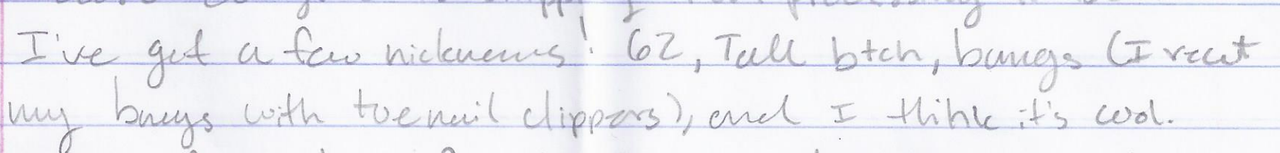 I've got a few nicknems! 62, Tall btch, bangs (I recut
my bangs with toenail clippers), and I think it's cool.